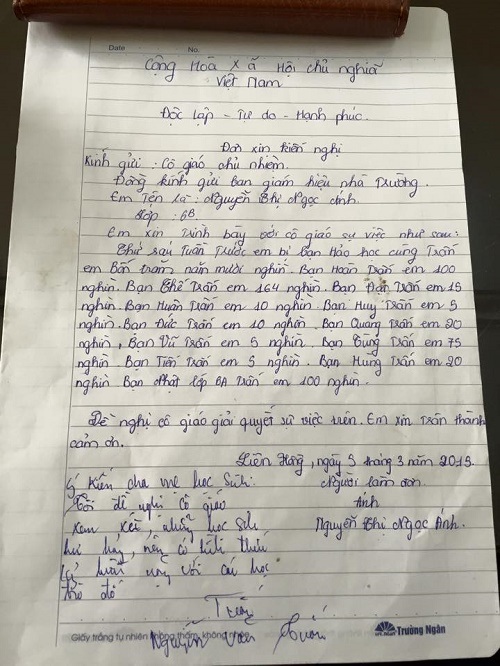 Date No.
Cộng Hoà Xã Hội chủ nghĩa
Việt Nam
Độc lập - Tự do - Hạnh phúc.
Đơn xin kiến nghị
Kính gửi : Cô giáo chủ nhiệm.
Đồng kính gửi Ban giám hiệu nhà Trường.
Em Tên là : Nguyễn Thị Ngọc Ánh.
Lớp : 6B.
Em xin Trình bày với cô giáo sự việc như sau:
Thứ sáu Tuần Trước em bị bạn Hảo học cùng Trấn
em Bốn trăm năm mươi nghìn. Bạn Hoàn Trấn em 100
nghìn. Bạn Thế Trấn em 164 nghìn. Bạn Đạt Trấn em 15
nghìn. Bạn Huấn Trấn em 10 nghìn. Bạn Huy Trấn em 5
nghìn. Bạn Đức Trấn em 10 nghìn. Bạn Quang Trấn em 20
nghìn, Bạn Vũ Trấn em 5 nghìn. Bạn Tùng Trấn em 75
nghìn. Bạn Tiến Trấn em 5 nghìn. Bạn Hùng Trấn em 20
nghìn Bạn Nhật lớp 6A Trấn em 100 nghìn.
Đề nghị cô giáo giải quyết sự việc trên. Em xin Trân thành
cảm ơn.
Liên Hồng, ngày 5 tháng 3 năm 2015.
ý kiến cha mẹ học Sinh. Người làm đơn.
Tôi đề nghị cô giáo Ánh
xem xét, những học sinh Nguyễn Thị Ngọc Ánh.
hư này, nên có hình thức
kỷ luật với các học
trò đó
Nguyễn Văn
Giấy trắng tự nhiên Trường Ngân